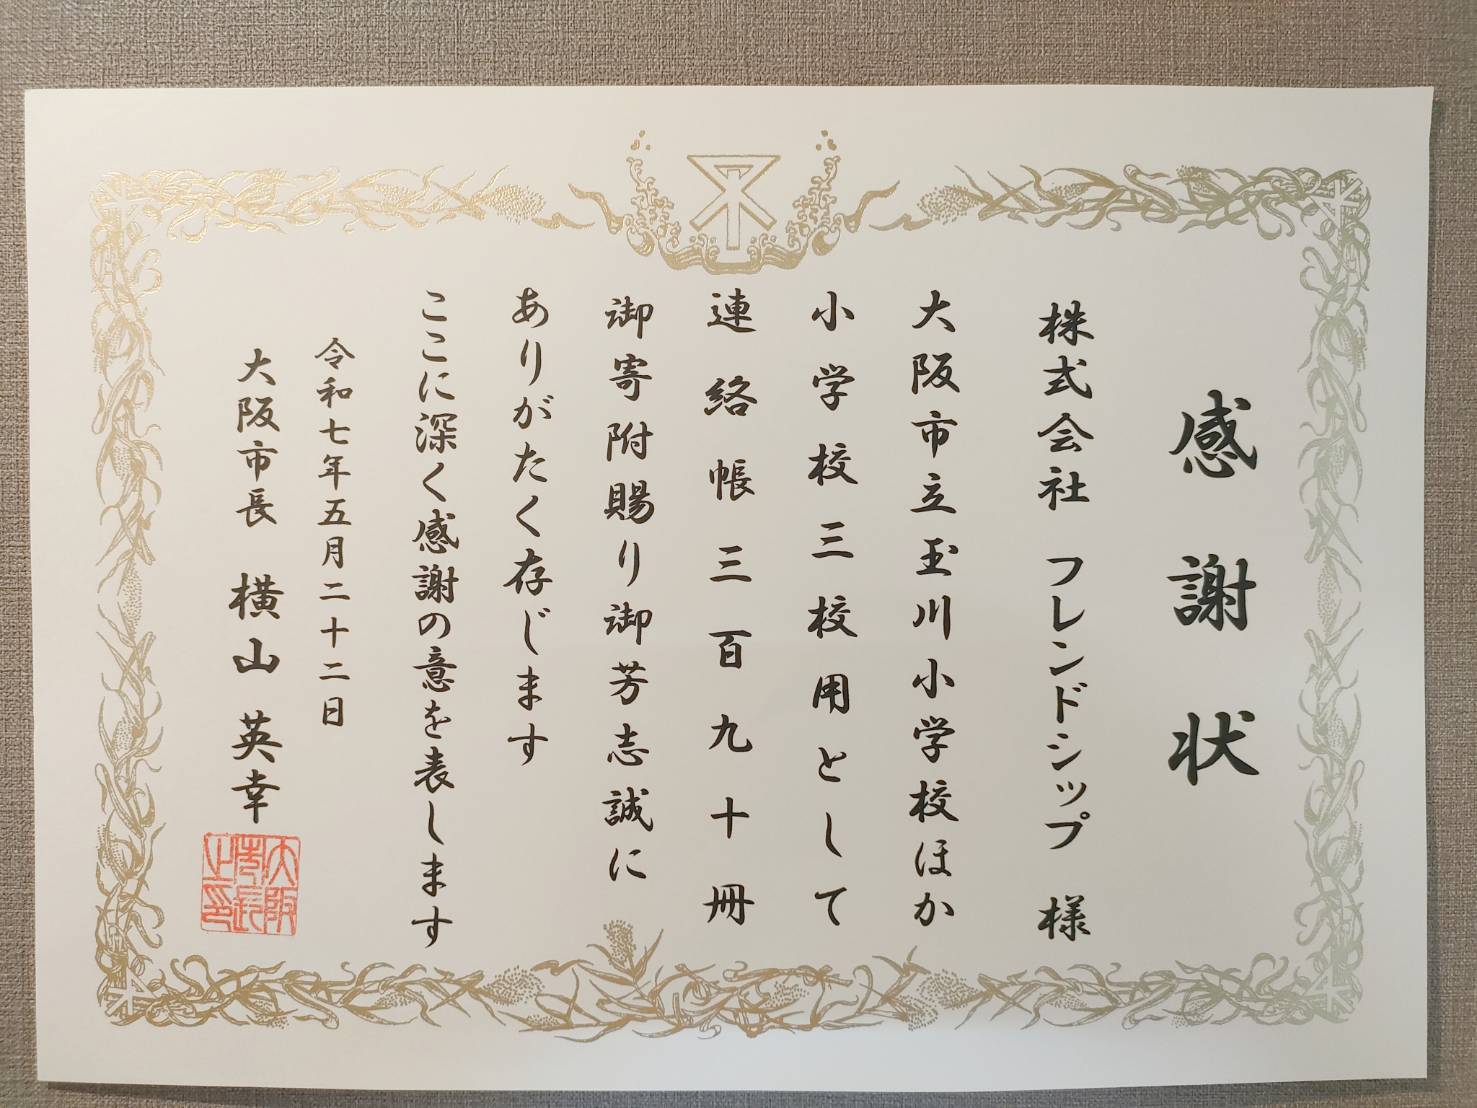 感謝状
株式会社 フレンドシップ 様
大阪市立玉川小学校ほか
小学校三校用として
連絡帳三百九十冊
御寄附賜り御芳志誠に
ありがたく存じます
ここに深く感謝の意を表します
令和七年五月二十二日
大阪市長 横山英幸
大阪
市長
之印